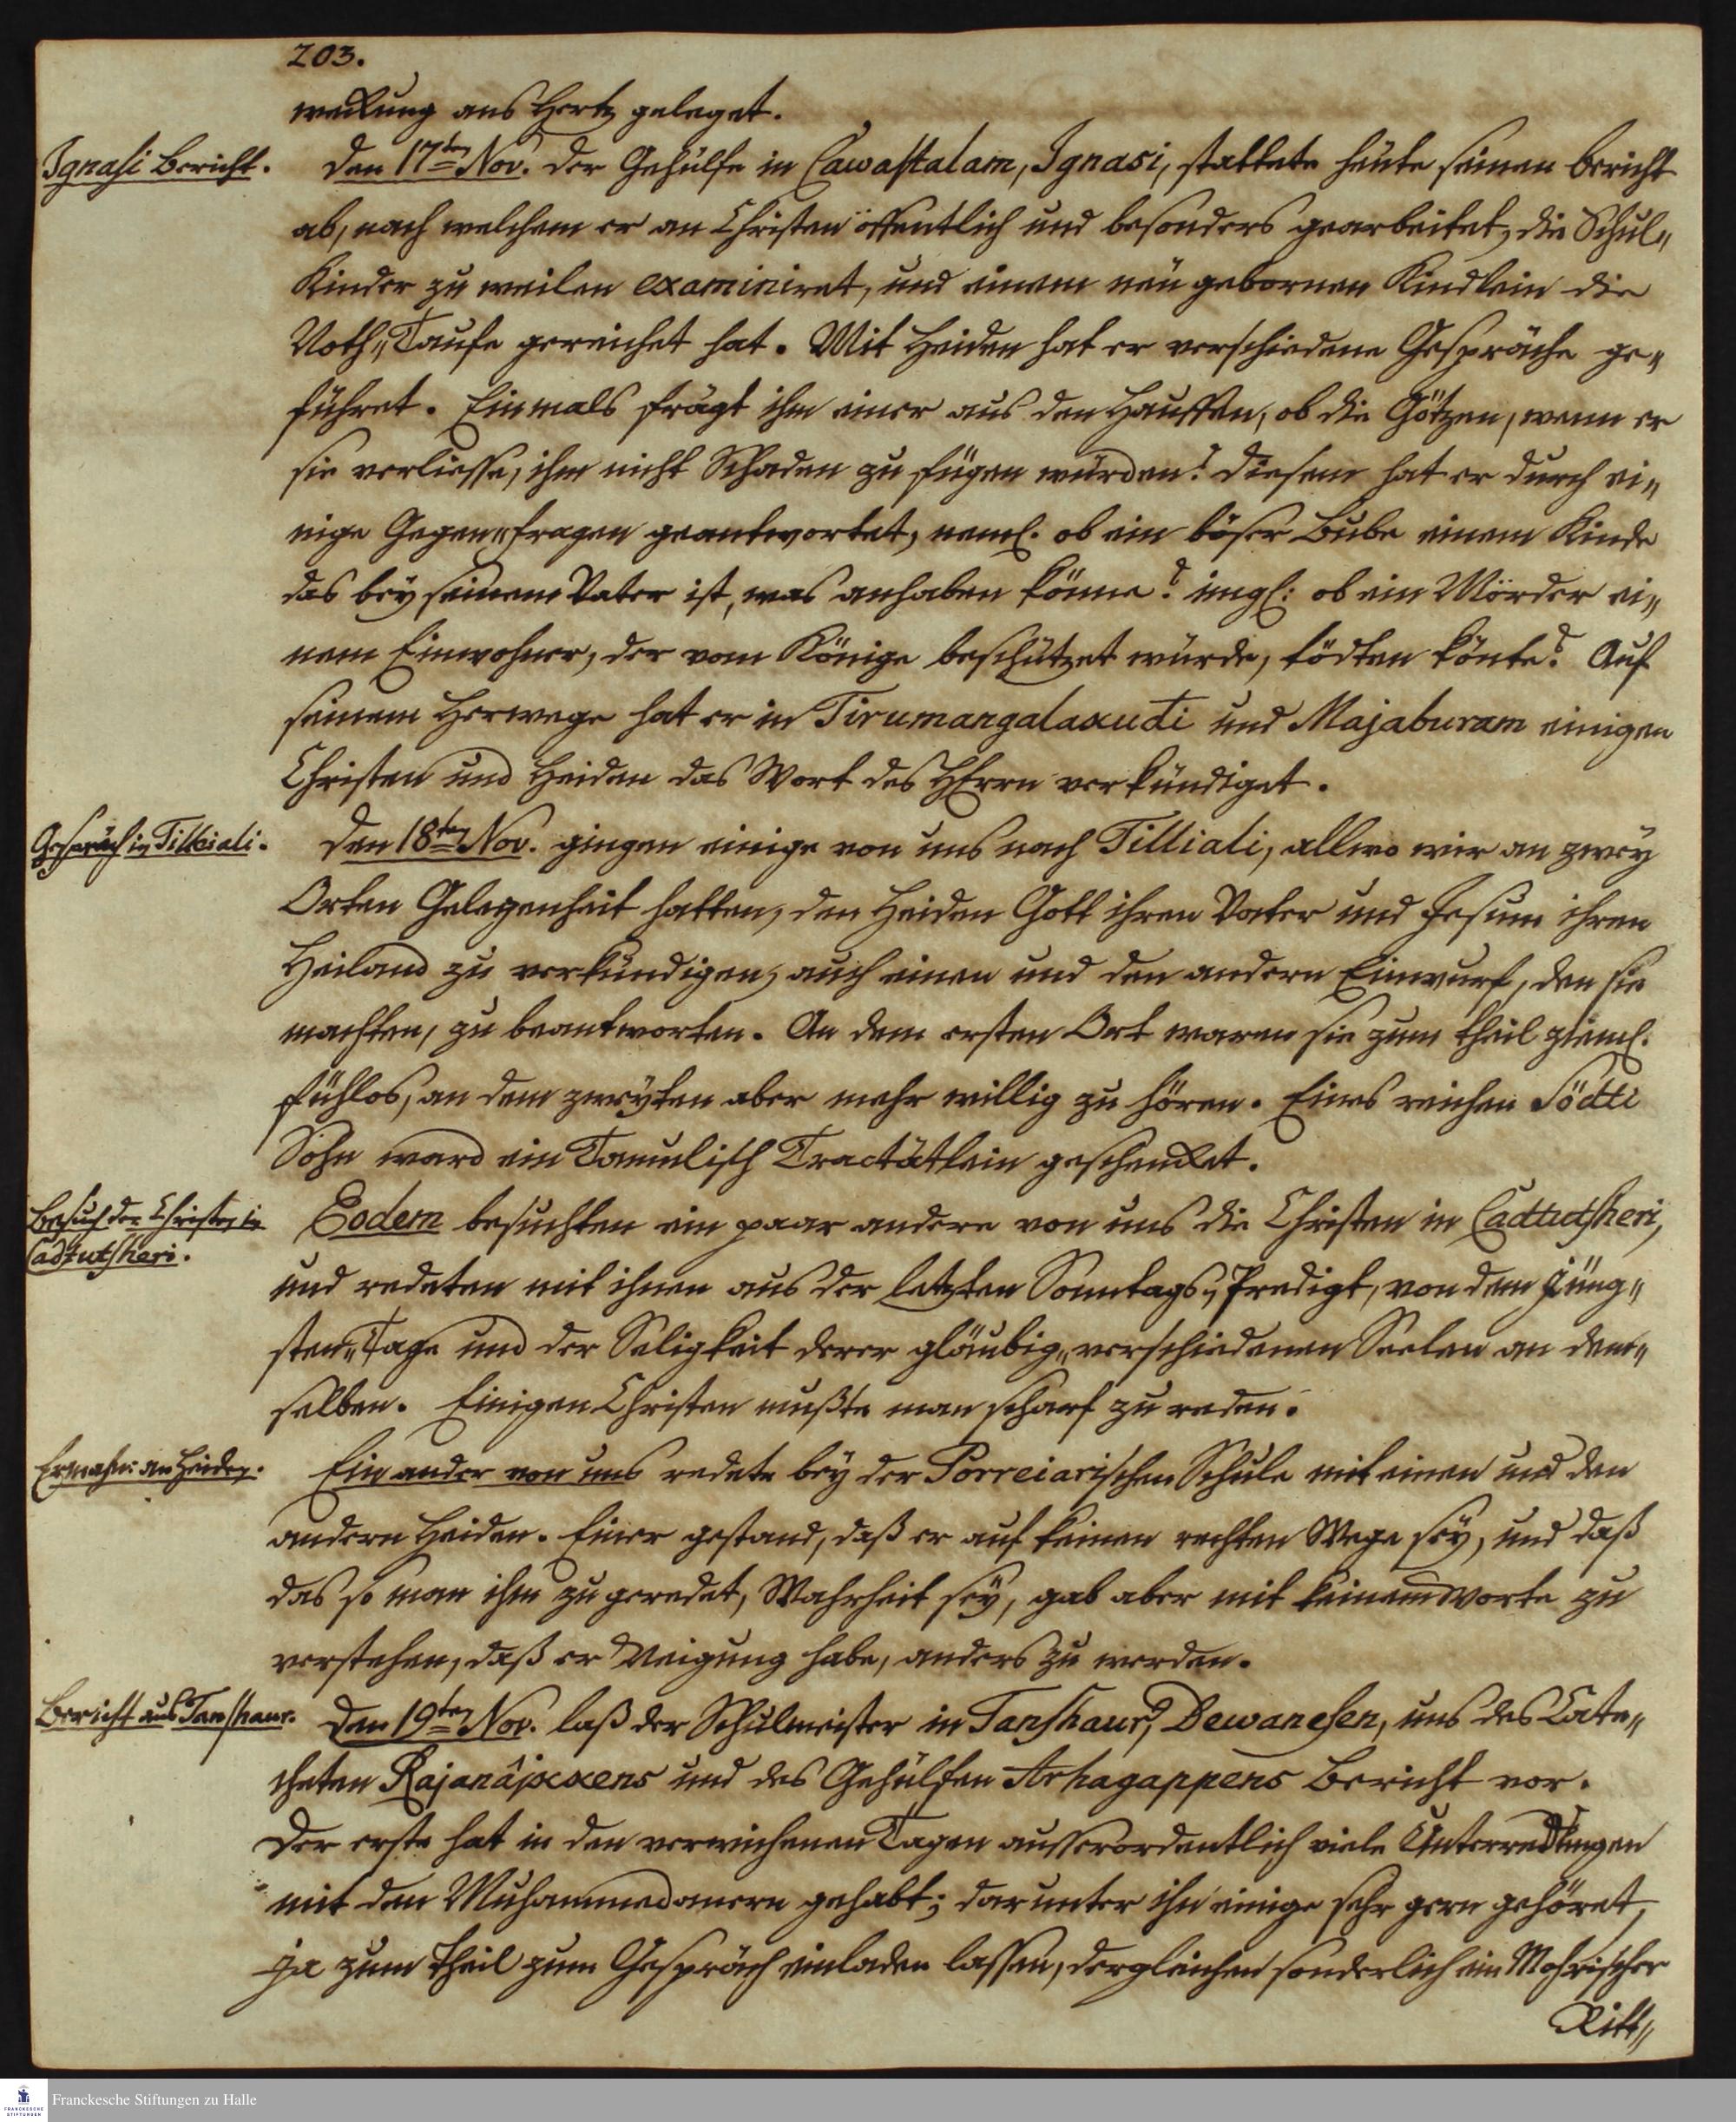 203.
weckung ans Hertz geleget.
Ignasi Bericht.
Den 17ten Nov. Der Gehülfe in Cawastalam, Ignasi, stattete heute seinen Bericht
ab, nach welchem er an Christen öffentlich und besonders gearbeitet, die Schul„
Kinder zu weilen examiniret, und einem neu gebornen Kindlein die
Noth„Taufe gereichet hat. Mit Heiden hat er verschiedene Gespräche ge„
führet. Einmals frägt ihm einer aus den Hauffen, ob die Götzen, wenn er
sie verliesse, ihm nicht Schaden zu fügen würden? Diesem hat er durch ei„
nige Gegen„fragen geantwortet, neml. ob ein böser Bube einem Kinde
das bey seinem Vater ist, was anhaben könne? imgl: ob ein Mörder ei„
nem Einwohner, der vom Könige beschützet würde, tödten könte? Auf
seinem Herwege hat er in Tirumangalaxudi und Majaburam einigen
Christen und Heiden das Wort des HErrn verkündiget.
Gespräch in Tilliali.
Den 18ten Nov. gingen einige von uns nach Tilliali, allwo wir an zwey
Orten Gelegenheit hatten, den Heiden Gott ihren Vater und Jesum ihren
Heiland zu verkündigen, auch einen und den andern Einwurf, den sie
machten, zu beantworten. An dem ersten Ort waren sie zum theil zieml.
fühlos, an dem zweyten aber mehr willig zu hören. Eines reichen Södti
Sohn ward ein Tamulisch Tractätlein geschencket.
Besuch der Christen in
Cadtutsheri.
Eodem besuchten ein paar andere von uns die Christen in Cadtutsheri,
und redeten mit ihnen aus der letzten Sonntags„Predigt, von dem jüng„
sten„Tage und der Seligkeit derer gläubig„verschiedenen Seelen an dem„
selben. Einigen Christen mußte man scharf zu reden.
Ermahn: an Heiden.
Ein ander von uns redete bey der Porreiarischen Schule mit einen und den
andern Heiden. Einer gestand, daß er auf keinen rechten Wege sey, und daß
das so man ihm zu geredet, Wahrheit sey, gab aber mit keinem Worte zu
verstehen, daß er Neigung habe, anders zu werden.
Bericht aus Tanshaur.
Den 19ten Nov. laß der Schulmeister in Tanshaur, Dewanesen, uns des Cate„
cheten Rajanâjxxens und des Gehülfen Arhagappens Bericht vor.
Der erste hat in den verwichenen Tagen ausserordentlich viele Unterredungen
mit den Muhammedanern gehabt; darunter ihn einige sehr gern gehöret,
ja zum theil zum Gespräch einladen lassen, dergleichen sonderlich ein Mohrischer
Ritt„
Franckesche Stiftungen zu Halle
FRANCKESCHE
STIFTUNGEN